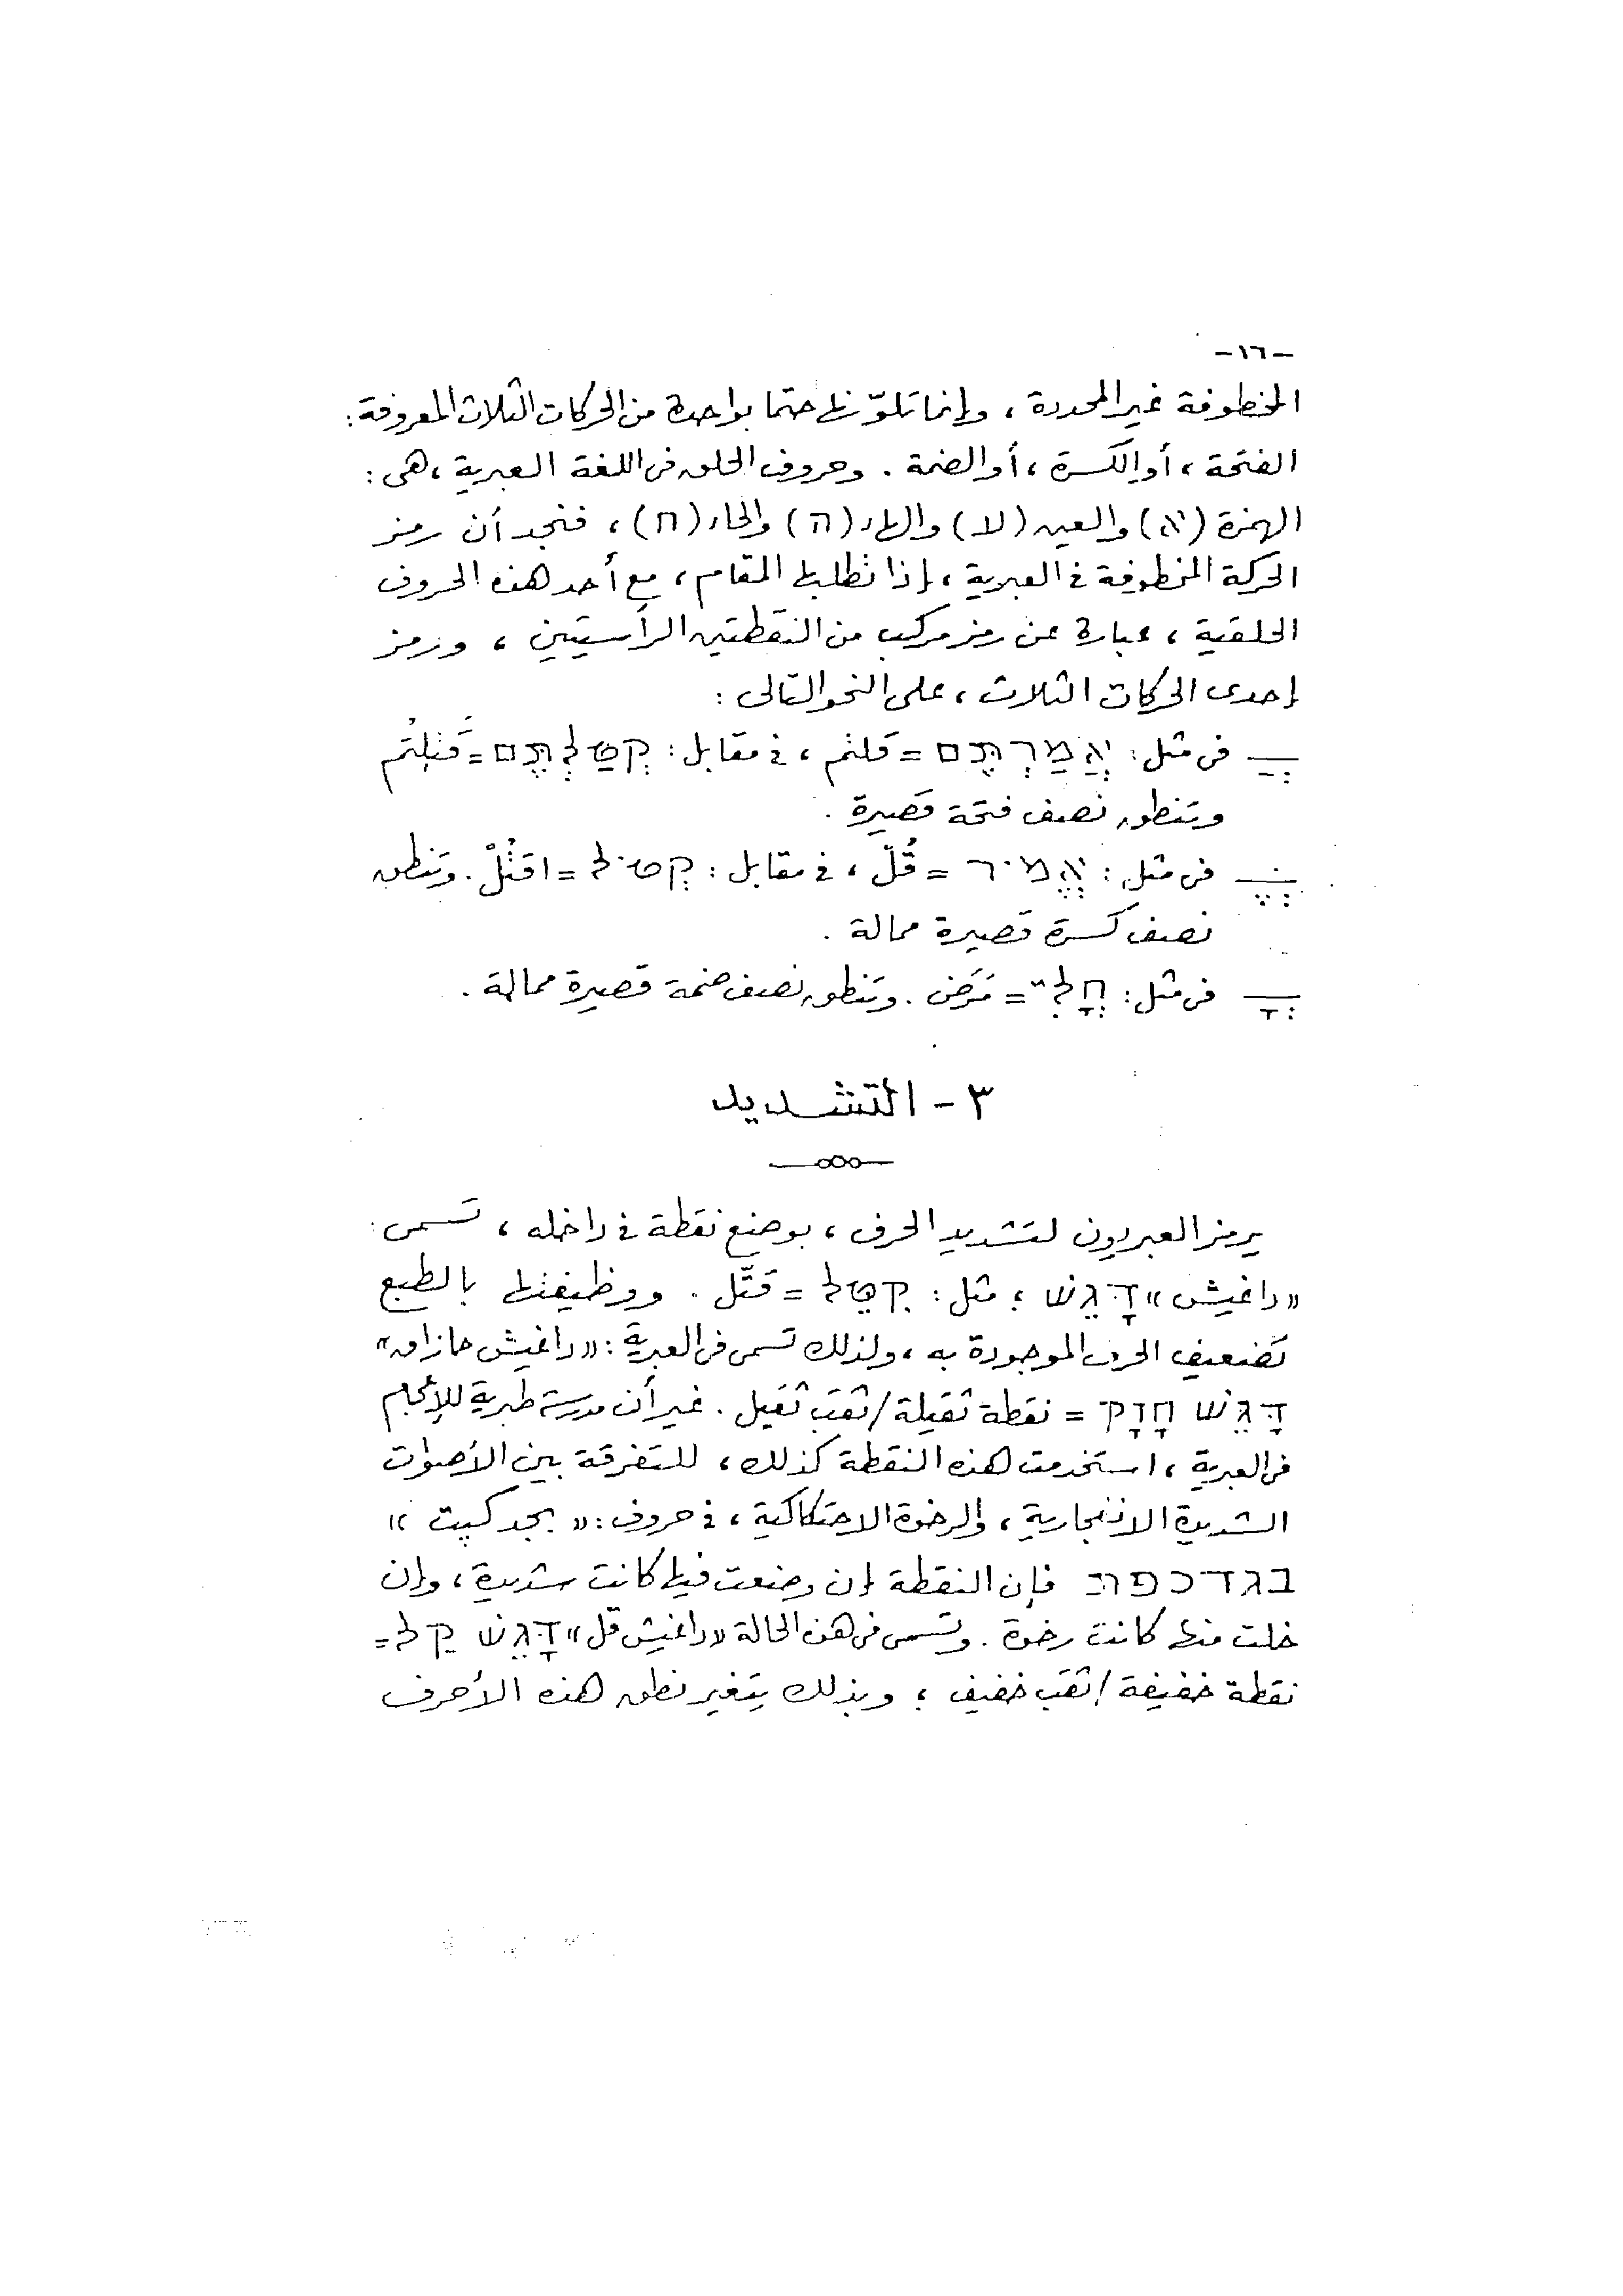 -١٦-
المخطوفة غير المحددة ، وإنما تلوّنها حتما بواحدة من الحركات الثلاث المعروفة :
الفتحة ، أو الكسرة ، أو الضمة . وحروف الحلق فى اللغة العبرية ، هى :
الهمزة (א) والعين (ע) والهاء (ה) والحاء (ח) ، فنجد أن رمز
الحركة المخطوفة فى العبرية ، إذا تطلبها المقام ، مع أحد هذه الحروف
الحلقية ، عبارة عن رمز مركب من النقطتين الرأسيتين ، ورمز
إحدى الحركات الثلاث ، على النحو التالى :
ــֲ فى مثل : אֲמַרְתֶּם = قلتم ، فى مقابل : קְטַלְתֶּם = قَتَلتُم
وتنطق نصف فتحة قصيرة .
ــֱ فى مثل : אֱמֹר = قُلْ ، فى مقابل : קְטֹל = اقتُلْ . وتنطق
نصف كسرة قصيرة ممالة .
ــֳ فى مثل : חֳלִי = مَرَض . وتنطق نصف ضمة قصيرة ممالة .
٣ - التشديد
يرمز العبريون لتشديد الحرف ، بوضع نقطة فى داخله ، تسمى :
« داغيش » דָּגֵשׁ ؛ مثل : קִטֵּל = قَتّل . ووظيفتها بالطبع
تضعيف الحرف الموجودة به ، ولذلك تسمى فى العبرية : « داغيش حازاق »
דָּגֵשׁ חָזָק = نقطة ثقيلة / ثقب ثقيل . غير أن مدرسة طبرية للإعجام
فى العبرية ، استخدمت هذه النقطة كذلك ، للتفرقة بين الأصوات
الشديدة الانفجارية ، والرخوة الاحتكاكية ، فى حروف : « بجد كپت »
בגדכפת فإن النقطة إن وضعت فيها كانت شديدة ، وإن
خلت منها كانت رخوة . وتسمى فى هذه الحالة « داغيش قل » דָּגֵשׁ קַל =
نقطة خفيفة / ثقب خفيف ؛ وبذلك يتغير نطق هذه الأحرف